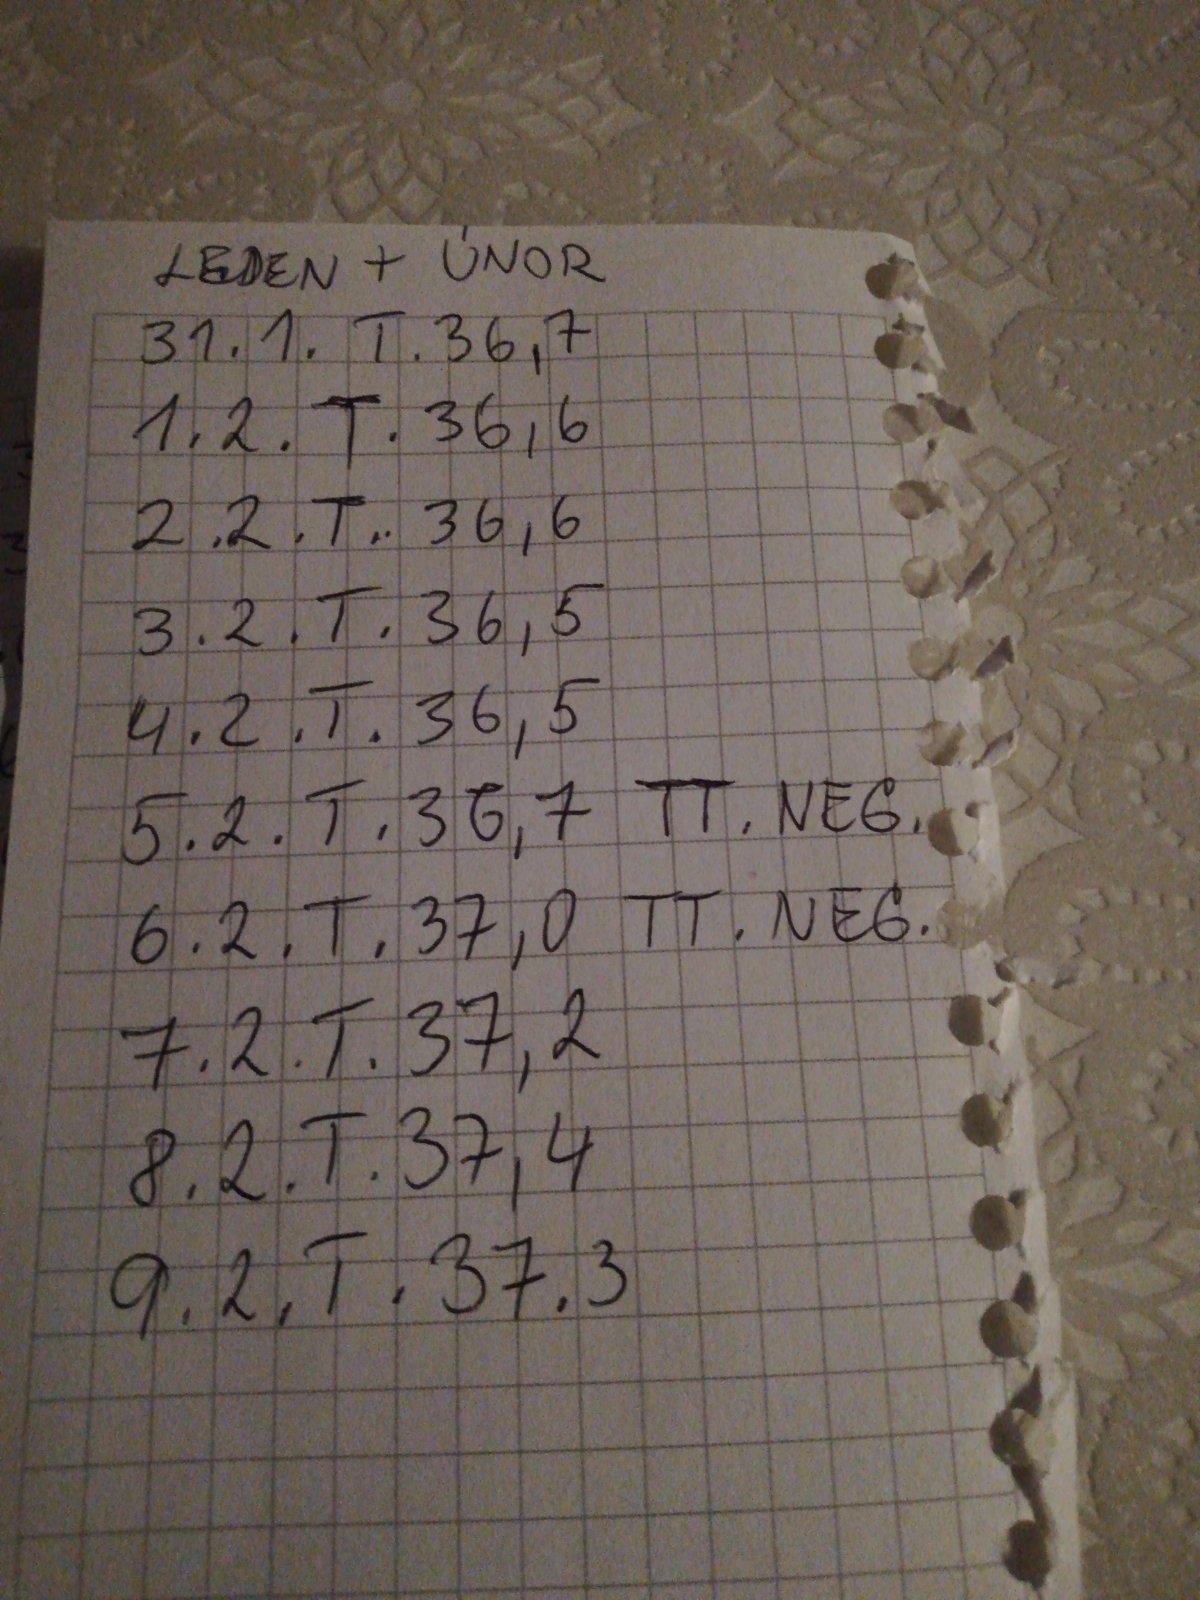 LEDEN + ÚNOR
31.1. T. 36,7
1.2. T. 36,6
2.2.T.. 36,6
3.2.T. 36,5
4.2.T. 36,5
5.2.T.36,7 TT. NEG.
6.2.T.37,0 TT. NEG.
7.2.T.37,2
8.2.T.37,4
9.2.T.37.3